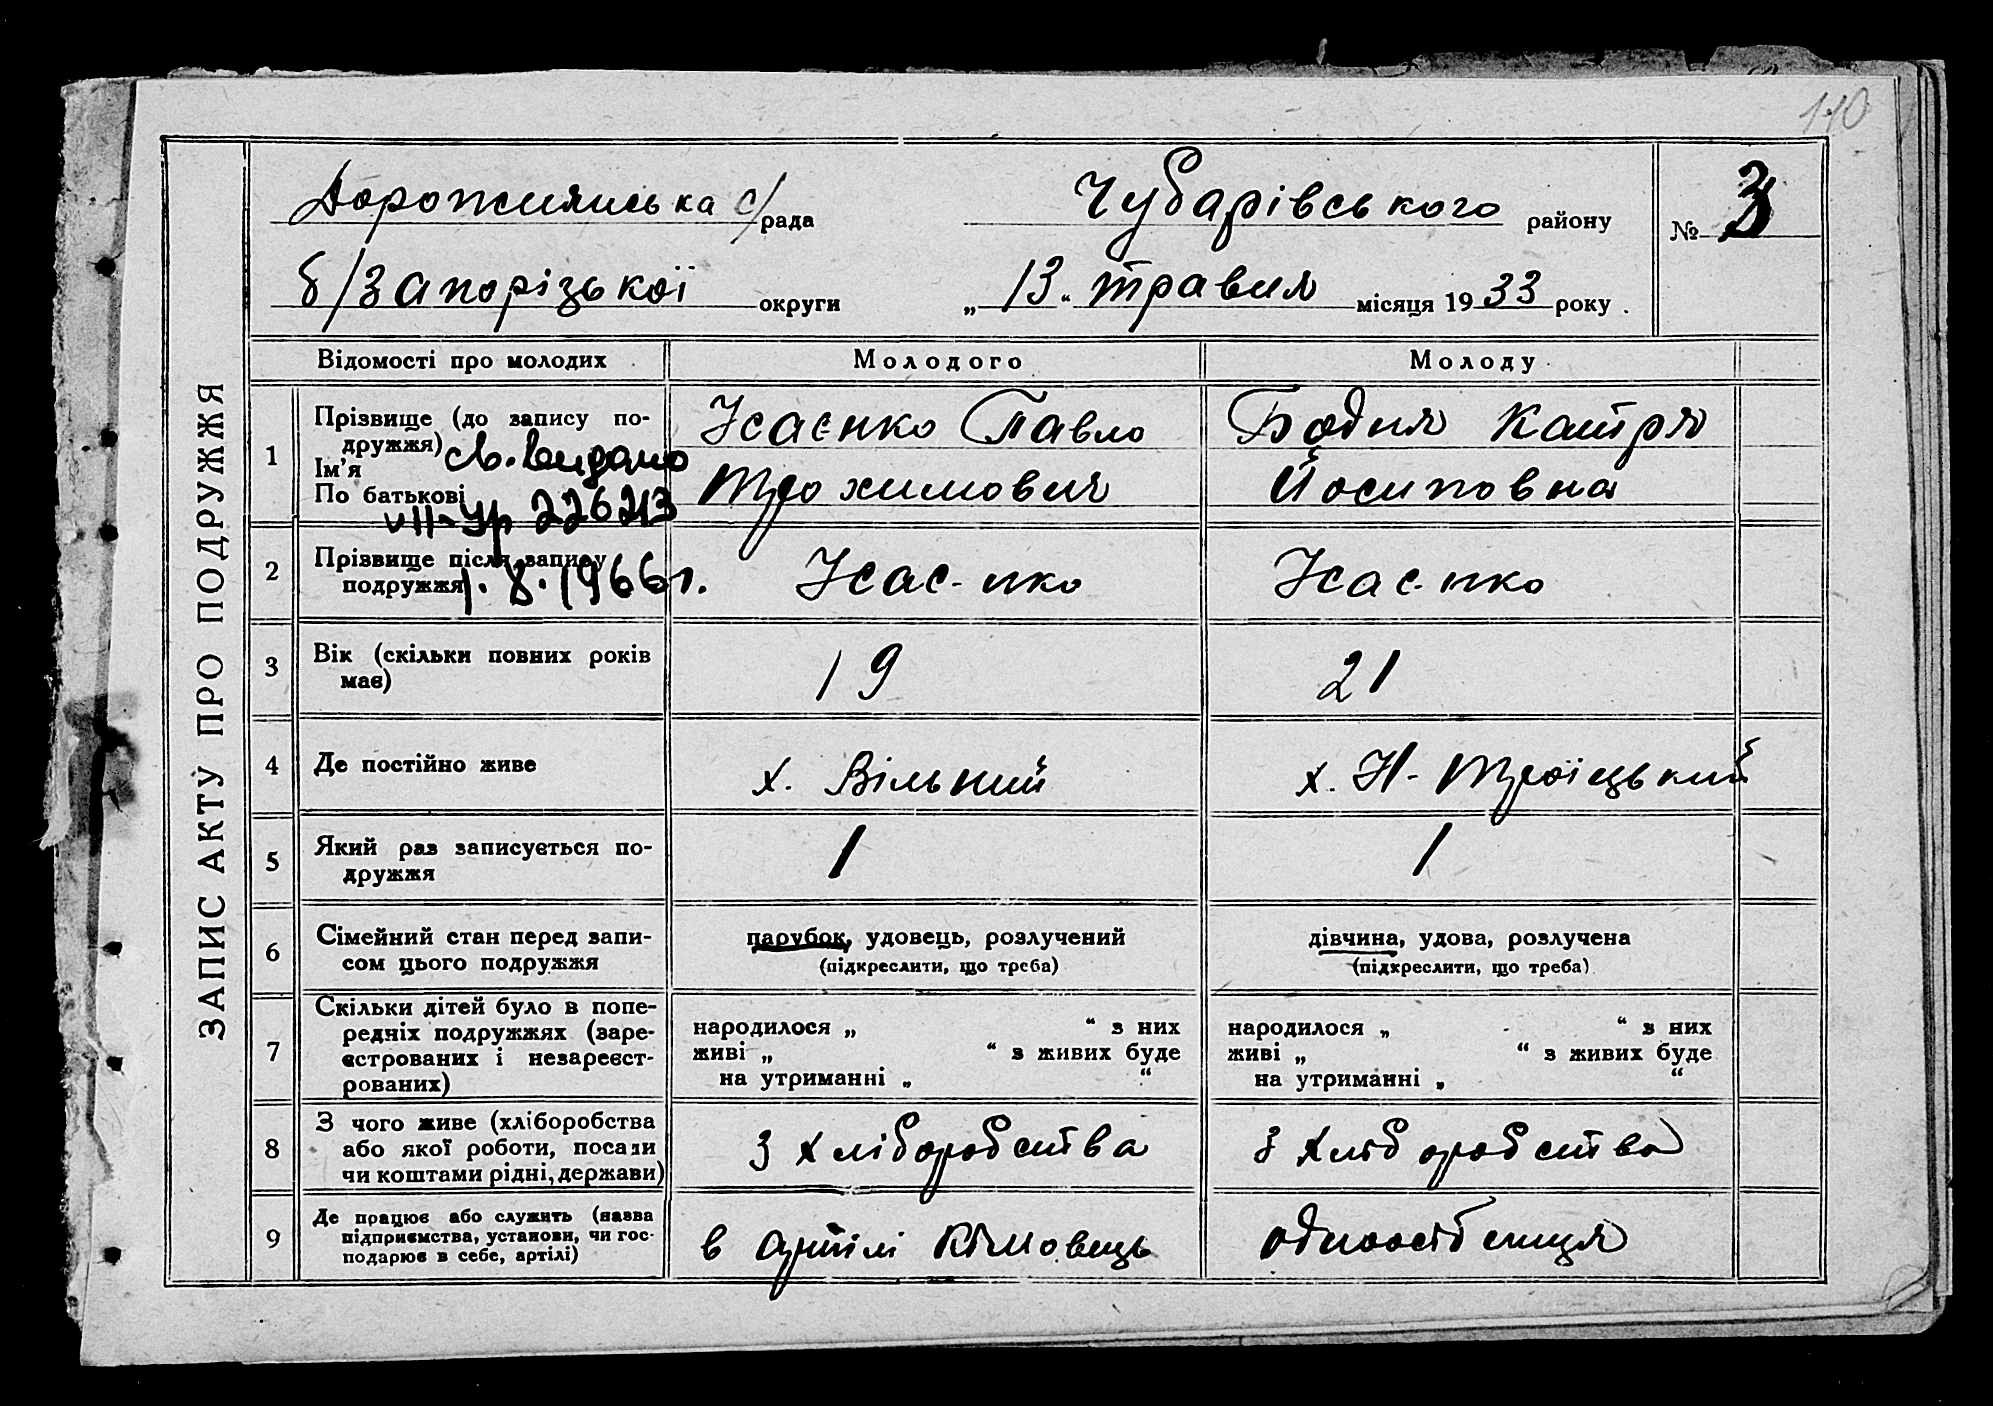 140
ЗАПИС АКТУ ПРО ПОДРУЖЖЯ
Дорожнянська с/рада Чубарівського району № 3
б/Запорізької округи „13“ травня місяця 1933 року
Відомості про молодих Молодого Молоду
1 Прізвище (до запису по-
дружжя)
Ім'я
По батькові
св. видано
VII-УР 226213
1.8.1966 г.
Ісаєнко Павло
Трохимович
Бодня Катря
Йосиповна
2 Прізвище після запису
подружжя
Ісаєнко Ісаєнко
3 Вік (скільки повних років
має)
19 21
4 Де постійно живе х. Вільний х. Н-Троїцький
5 Який раз записується по-
дружжя
1 1
6 Сімейний стан перед запи-
сом цього подружжя
парубок, удовець, розлучений
(підкреслити, що треба)
дівчина, удова, розлучена
(підкреслити, що треба)
7 Скільки дітей було в попе-
редніх подружжях (заре-
єстрованих і незареєст-
рованих)
народилося „ “ з них
живі „ “ з живих буде
на утриманні „ “
народилося „ “ з них
живі „ “ з живих буде
на утриманні „ “
8 З чого живе (хліборобства
або якої роботи, посади
чи коштами рідні, держави)
з хліборобства з хліборобства
9 Де працює або служить (назва
підприємства, установи, чи гос-
подарює в себе, артілі)
в артілі Кімовець одноосібниця